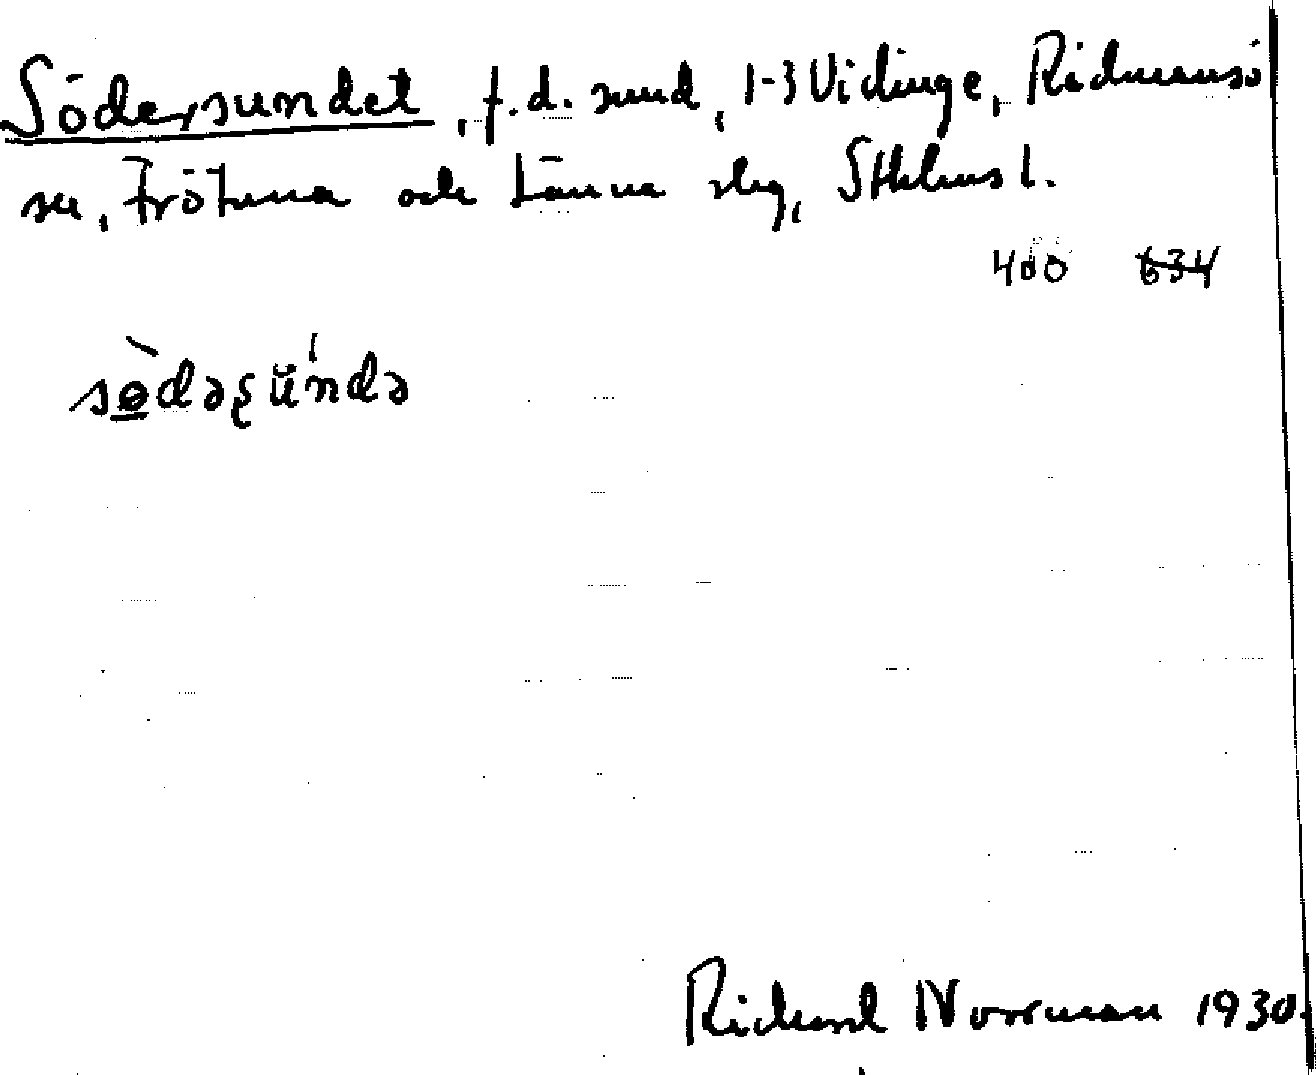 Södersundet, f.d. sund, 1-3 Vidinge, Rådmansö
sn, Frötuna och Länna slg, Sthlms l.
400 634
sɵ̀dəʂŭ́ndə
Richard Norrman 1930.